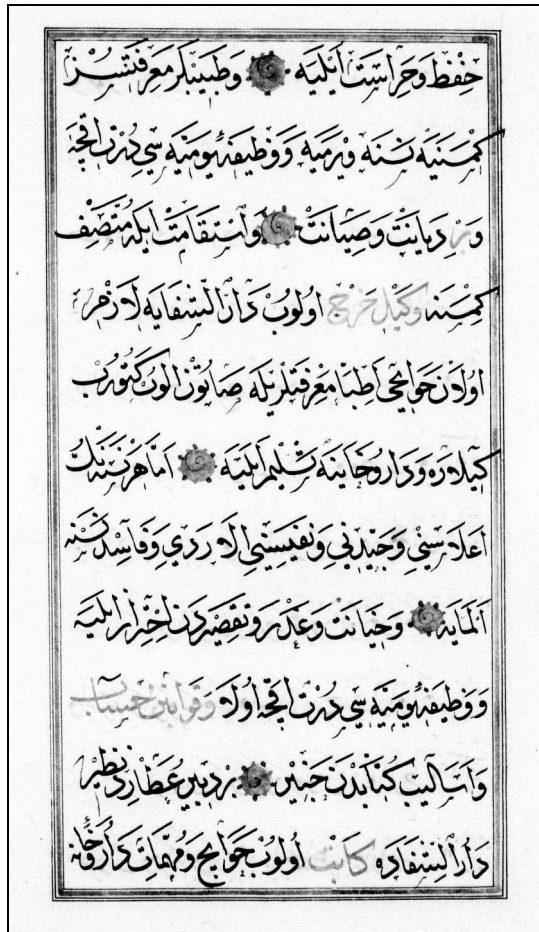 حفظ و حراست ايليه و طبيبلر معرفتسز
كمسنيه نسنه ويرميه و وظيفۀ يوميه سي درت اقچه
و بر ديانت و صيانت و استقامت ايله متصف
كمسنه وكيل خرج اولوب دار الشفايه لازم
اولان حوايجي اطبا معرفتلريله صاتون الوب كتورب
كيلاره و داروخانيه تسليم ايليه اما هر نسنه نك
اعلاسيني و جيدني و نفيسيني الا ردي و فاسد نسنه
المايه و خيانت و غدر و تقصيردن احتراز ايليه
و وظيفۀ يوميه سي درت اقچه اولا و قوانين حساب
و اساليب كتابدن خبير بر دبير عطارد نظير
دار الشفاده كاتب اولوب حوايج و مهمات داروخانه